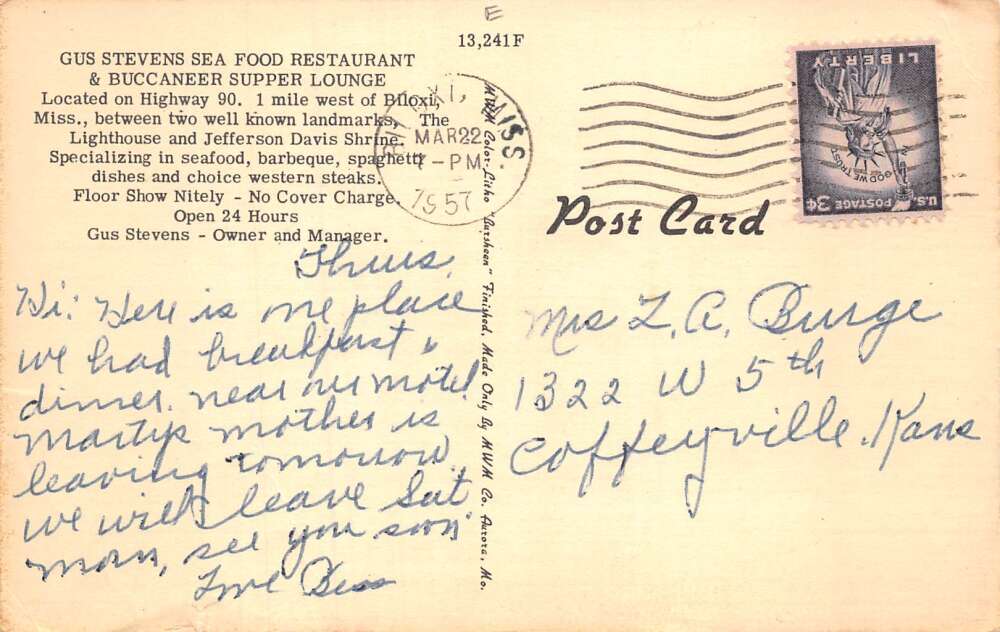 E
13,241F
GUS STEVENS SEA FOOD RESTAURANT
& BUCCANEER SUPPER LOUNGE
Located on Highway 90. 1 mile west of Biloxi,
Miss., between two well known landmarks, The
Lighthouse and Jefferson Davis Shrine.
Specializing in seafood, barbeque, spaghetti
dishes and choice western steaks.
Floor Show Nitely - No Cover Charge.
Open 24 Hours
Gus Stevens - Owner and Manager.
BILOXI, MISS.
MAR 22
1957
MWM Color-Litho "Aursheen" Finished, Made Only By MWM Co. Aurora, Mo.
LIBERTY
IN GOD WE TRUST
U.S. POSTAGE 3¢
Post Card
Thurs.
Hi: Here is one place
we had breakfast &
dinner. near our motel
Martys mother is
leaving tomorrow.
we will leave Sat
morn, see you soon
Love Bess
Mrs L. A. Burge
1322 W 5th
Coffeyville. Kans